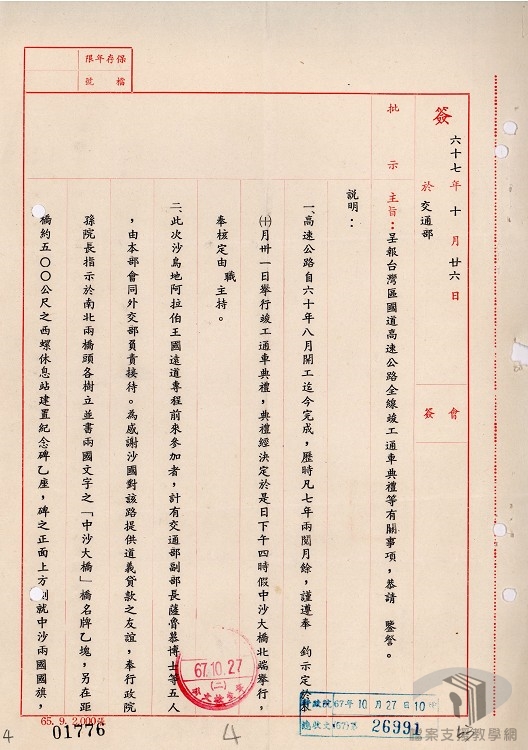 保存年限
檔號
簽
六十七年十月廿六日
於交通部
會簽
批示
主旨：呈報台灣區國道高速公路全線竣工通車典禮等有關事項，恭請　鑒詧。
說明：
一、高速公路自六十年八月開工迄今完成，歷時凡七年兩閱月餘，謹遵奉　鈞示定於本
㈩月卅一日舉行竣工通車典禮，典禮經決定於是日下午四時假中沙大橋北端舉行，
奉核定由　職　主持。
二、此次沙烏地阿拉伯王國遠道專程前來參加者，計有交通部副部長薩魯慕博士等五人
，由本部會同外交部負責接待。為感謝沙國對該路提供道義貸款之友誼，奉行政院
孫院長指示於南北兩橋頭各樹立並書兩國文字之「中沙大橋」橋名牌乙塊，另在距
橋約五〇〇公尺之西螺休息站建置紀念碑乙座，碑之正面上方刻就中沙兩國國旗，
67.10.27
(二)
行政院67年10月27日10時
總收文(67)第 26991
65. 9. 2,000張
01776
4
4
檔案支援教學網